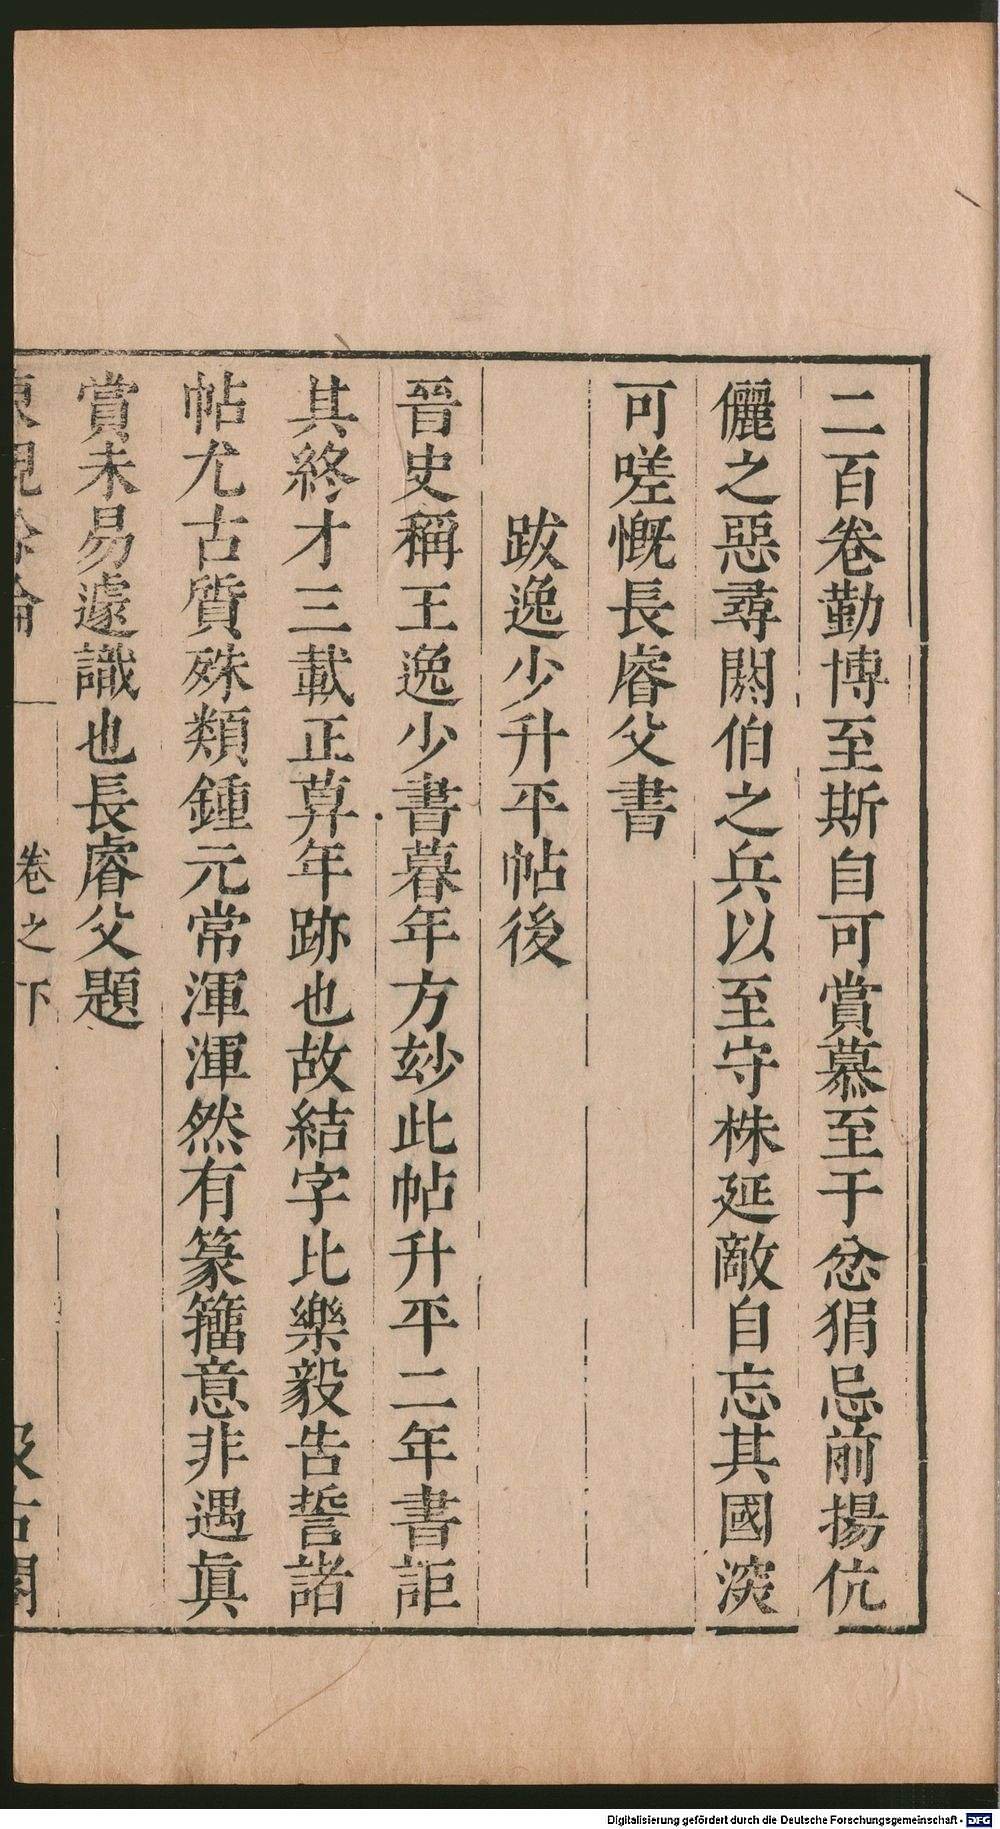 二百卷勤博至斯自可賞慕至于忿狷忌前揚伉
儷之惡尋閼伯之兵以至守株延敵自忘其國深
可嗟慨長睿父書
跋逸少升平帖後
晉史稱王逸少書暮年方玅此帖升平二年書詎
其終才三載正算年跡也故結字比樂毅告誓諸
帖尤古質殊類鍾元常渾渾然有篆籀意非遇眞
賞未易遽識也長睿父題
東觀餘論
卷之下
汲古閣
Digitalisierung gefördert durch die Deutsche Forschungsgemeinschaft - DFG